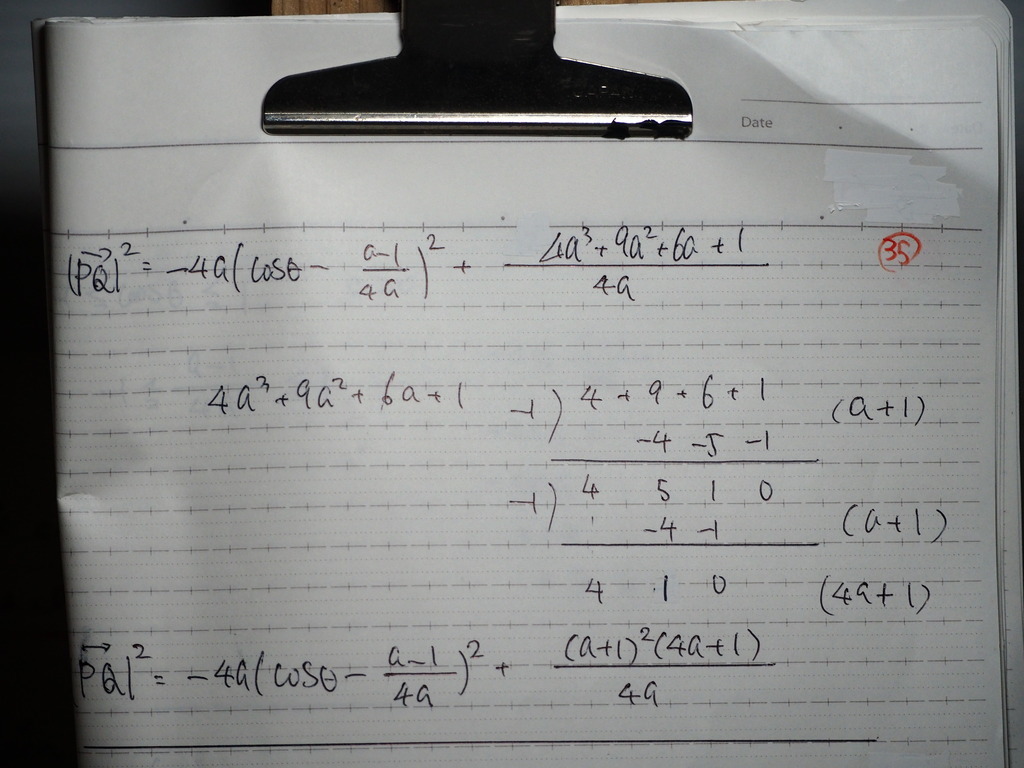 Date
|PQ⃗|² = -4a(cosθ - (a-1)/(4a))² + (4a³+9a²+6a+1)/(4a) 35
4a³+9a²+6a+1 -1) 4 + 9 + 6 + 1 (a+1)
-4 -5 -1
-1) 4 5 1 0
-4 -1 (a+1)
4 1 0 (4a+1)
|PQ⃗|² = -4a(cosθ - (a-1)/(4a))² + ((a+1)²(4a+1))/(4a)